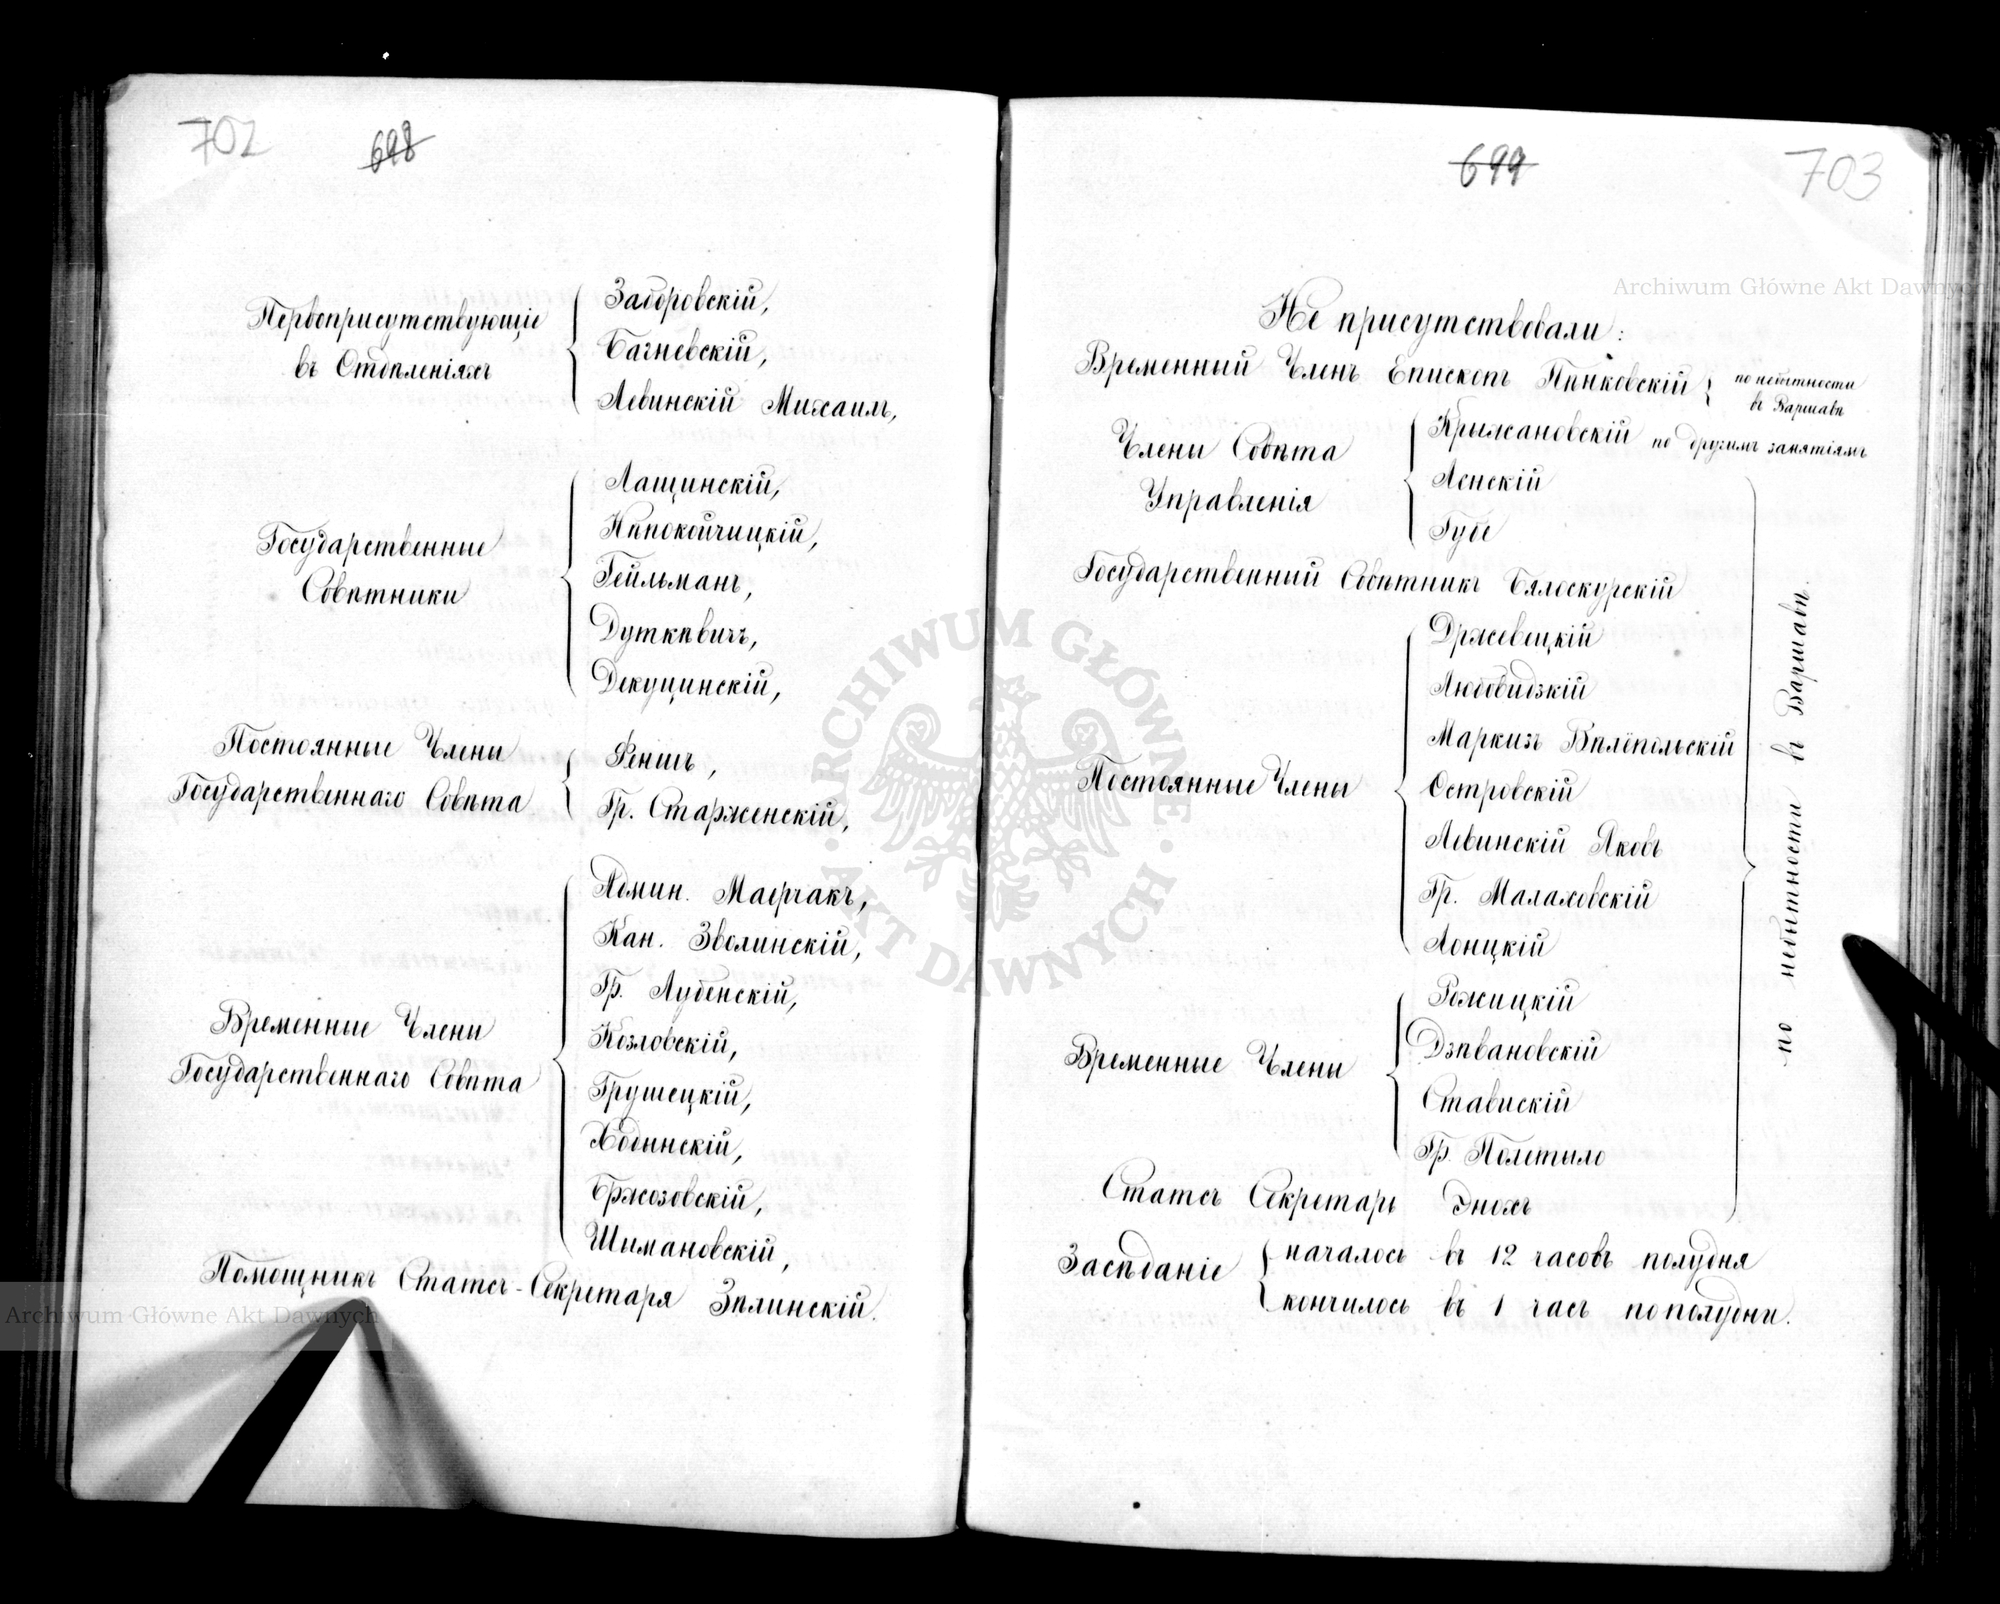 702
698
Первоприсутствующіе
въ Отдѣленіяхъ
Заборовскій,
Бачневскій,
Левинскій Михаилъ,
Государственные
Совѣтники
Лащинскій,
Нѣпокойчицкій,
Гейльманъ,
Дуткѣвичъ,
Декуцинскій,
Постоянные Члены
Государственнаго Совѣта
Феншъ,
Гр. Старженскій,
Временные Члены
Государственнаго Совѣта
Админ. Маерчакъ,
Кан. Зволинскій,
Гр. Лубенскій,
Козловскій,
Грушецкій,
Ходынскій,
Бржозовскій,
Шимановскій,
Помощникъ Статсъ-Секретаря Зѣлинскій.
699
703
Не присутствовали:
Временный Членъ Епископъ Пѣнковскій
по небытности
въ Варшавѣ
Члены Совѣта
Управленія
Крыжановскій по другимъ занятіямъ
Ленскій
Губе
Государственный Совѣтникъ Бялоскурскій
Постоянные Члены
Држевецкій
Любовидзкій
Маркизъ Вѣлёпольскій
Островскій
Левинскій Яковъ
Гр. Малаховскій
Лонцкій
Временные Члены
Рожицкій
Дзѣвановскій
Стависскій
Гр. Полетыло
Статсъ Секретарь Энохъ
по небытности въ Варшавѣ.
Засѣданіе
началось въ 12 часовъ полудня
кончилось въ 1 часъ пополудни.
Archiwum Główne Akt Dawnych
Archiwum Główne Akt Dawnych
ARCHIWUM GŁÓWNE · AKT DAWNYCH ·